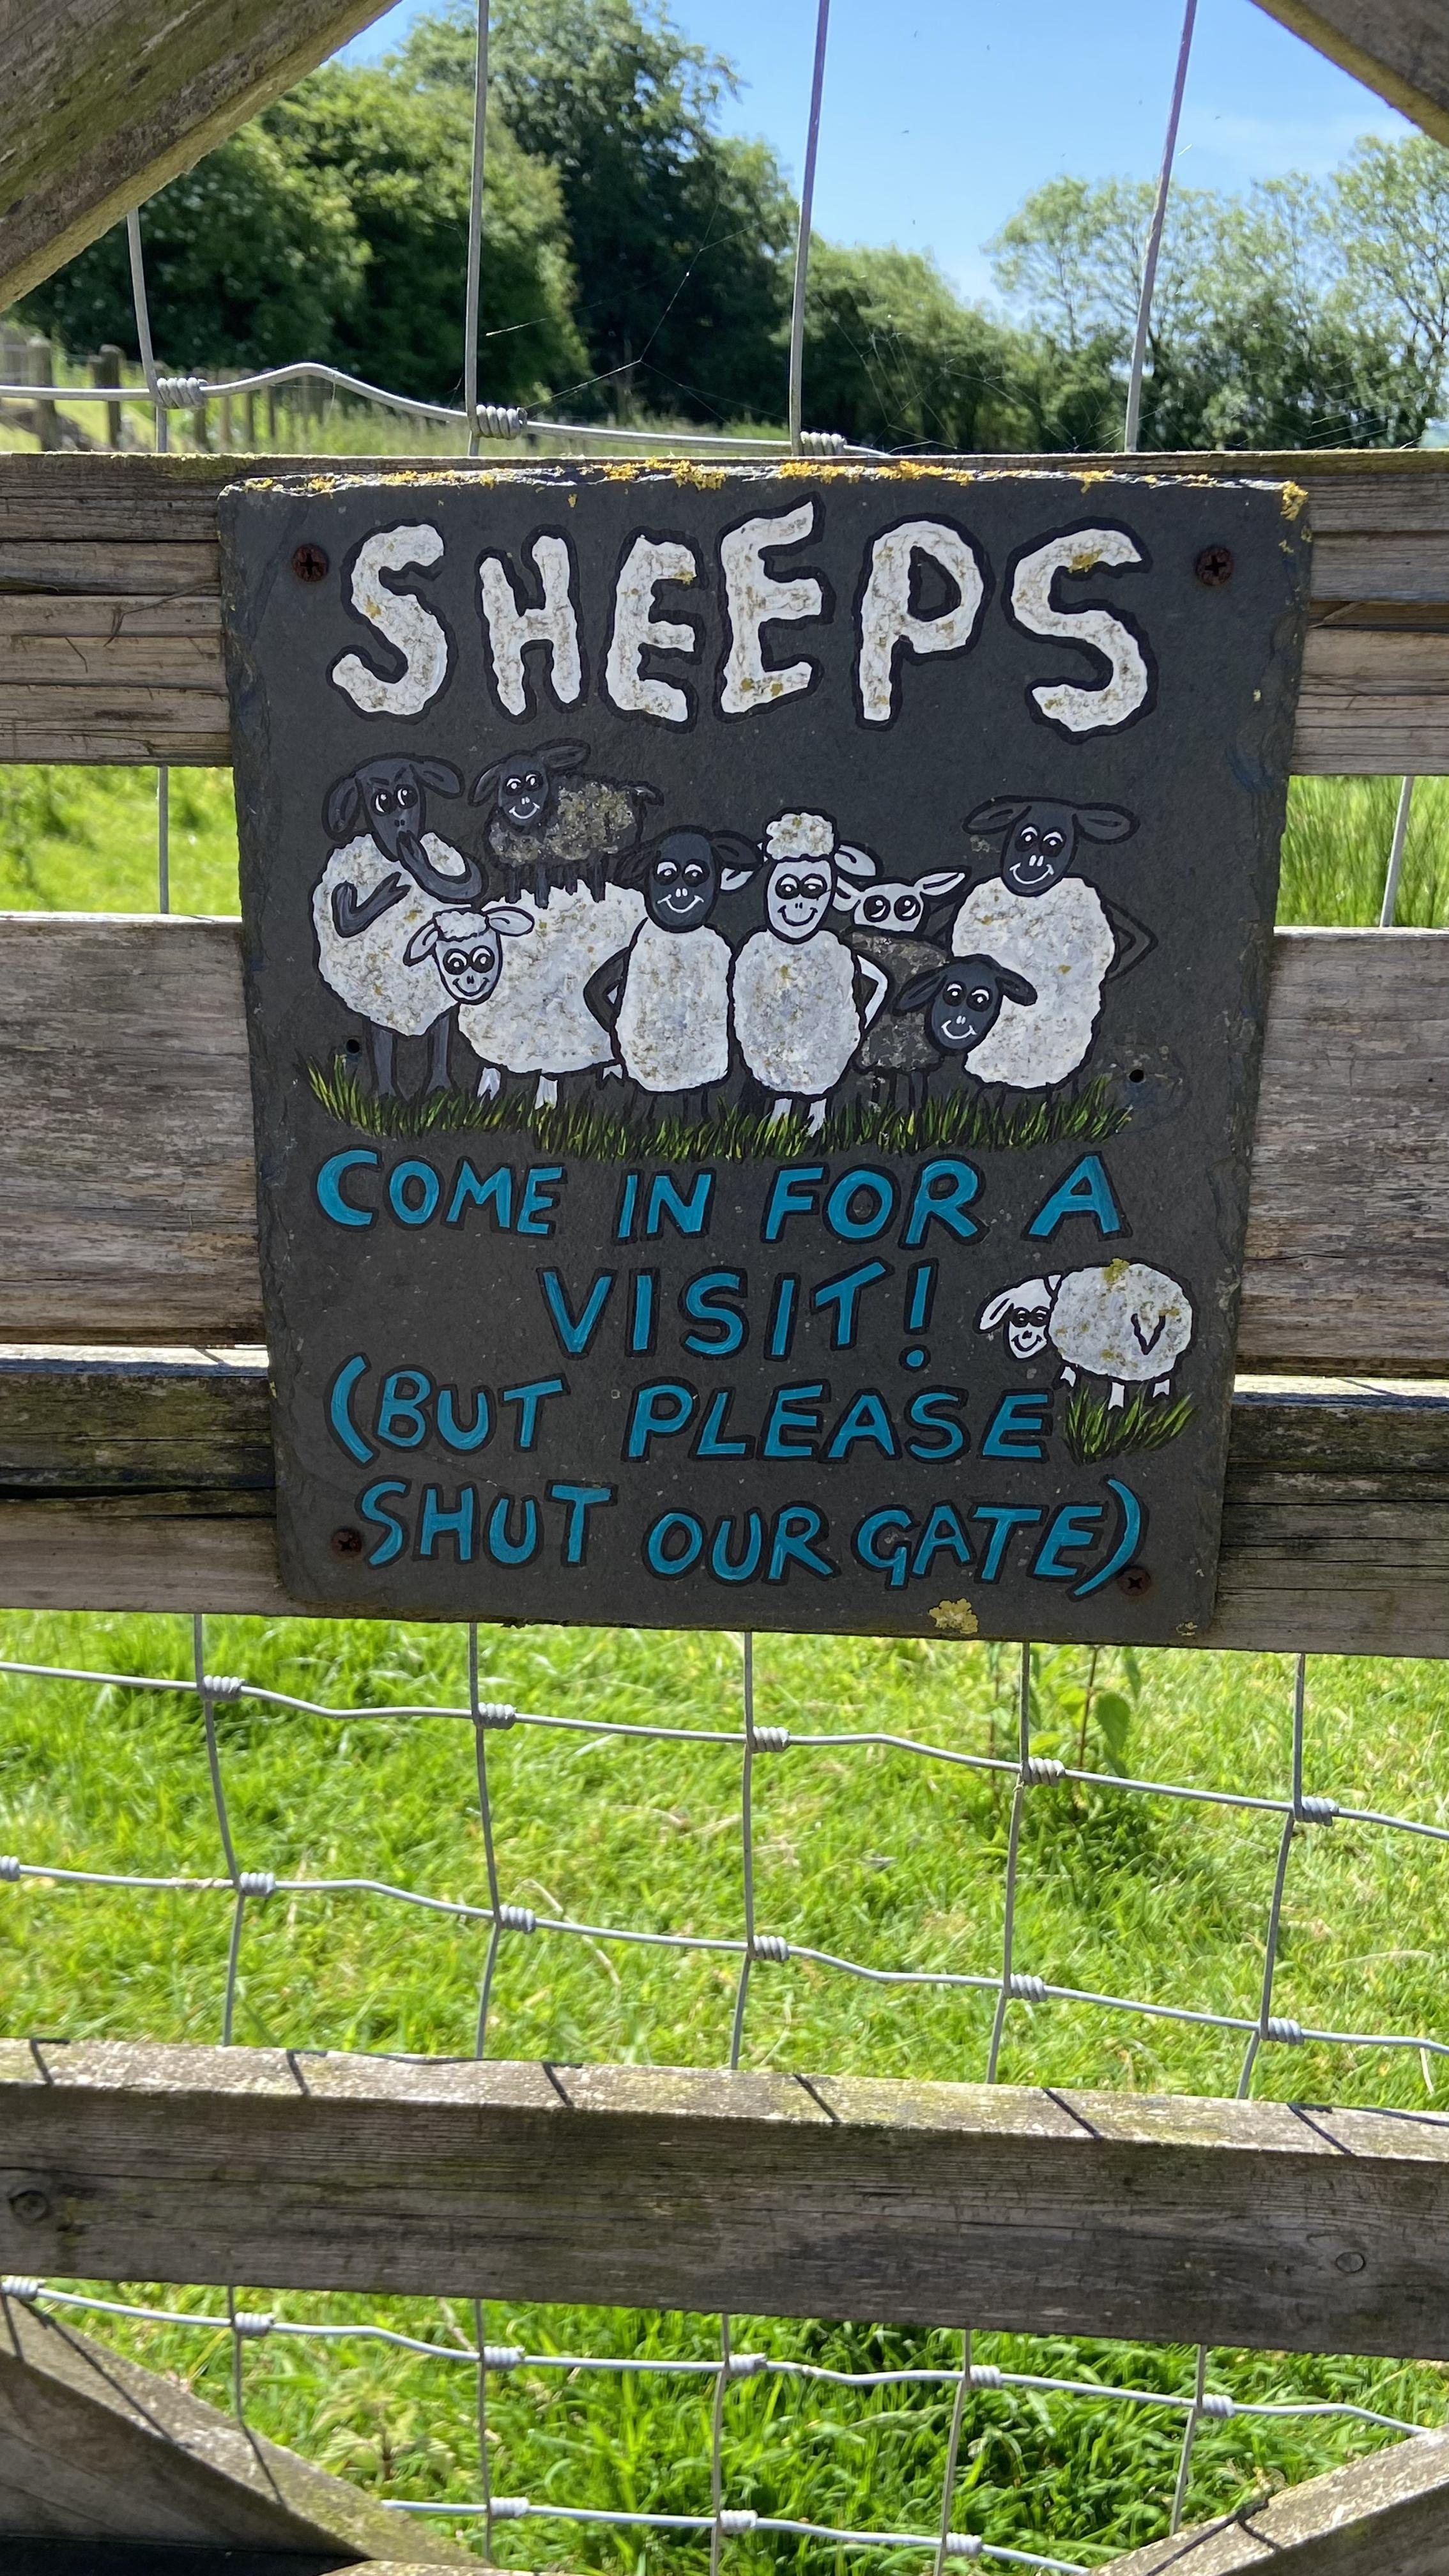 SHEEPS
COME IN FOR A
VISIT!
(BUT PLEASE
SHUT OUR GATE)